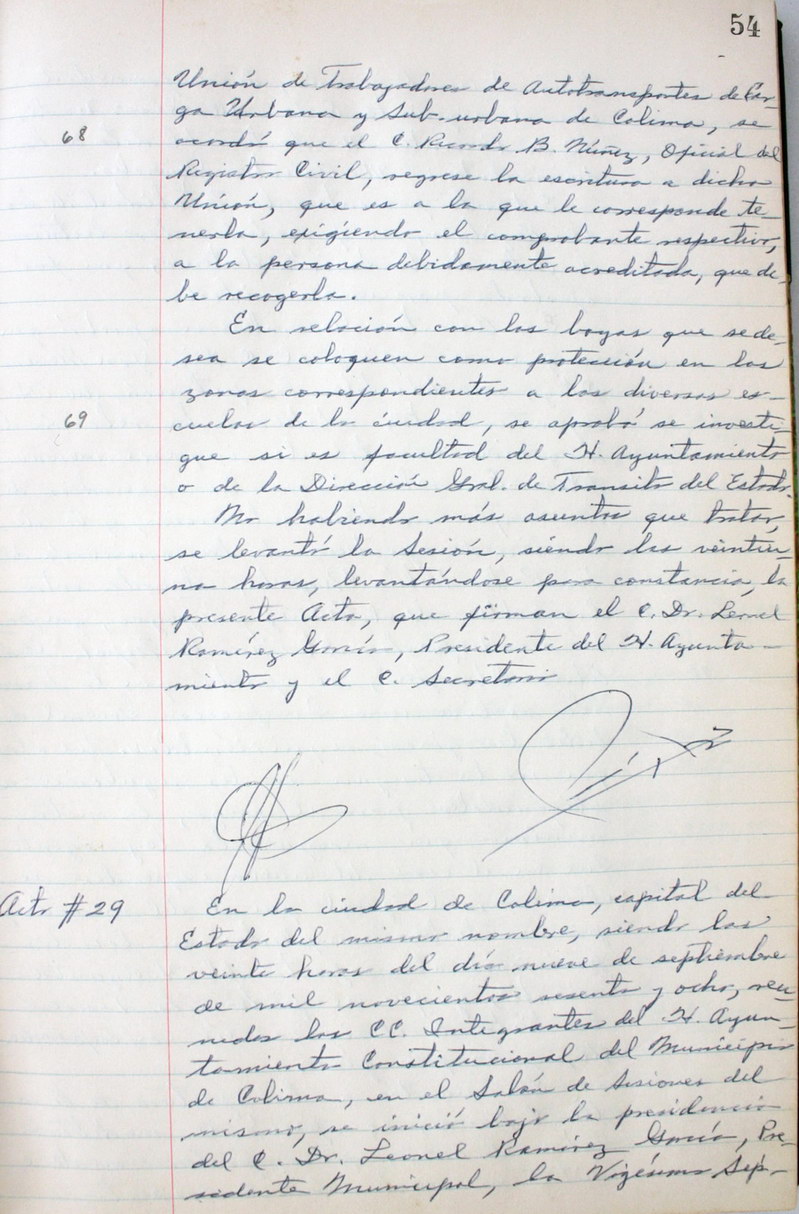 54
Unión de Trabajadores de Autotransportes de Car-
ga Urbana y Sub-urbana de Colima, se
68
acordó que el C. Ricardo B. Núñez, Oficial del
Registro Civil, regrese la escritura a dicha
Unión, que es a la que le corresponde te-
nerla, exigiendo el comprobante respectivo,
a la persona debidamente acreditada, que de-
be recogerla.
En relación con las boyas que se de-
sea se coloquen como protección en las
zonas correspondientes a las diversas es-
69
cuelas de la ciudad, se aprobó se investi-
gue si es facultad del H. Ayuntamiento
o de la Dirección Gral. de Transito del Estado.
No habiendo más asuntos que tratar,
se levantó la Sesión, siendo las veintiu-
na horas, levantándose para constancia, la
presente Acta, que firman el C. Dr. Leonel
Ramírez García, Presidente del H. Ayunta-
miento y el C. Secretario
Acta #29
En la ciudad de Colima, capital del
Estado del mismo nombre, siendo las
veinte horas del día nueve de septiembre
de mil novecientos sesenta y ocho, reu-
nidos los CC. Integrantes del H. Ayun-
tamiento Constitucional del Municipio
de Colima, en el Salón de Sesiones del
mismo, se inició bajo la presidencia
del C. Dr. Leonel Ramírez García, Pre-
sidente Municipal, la Vigésima Sép-